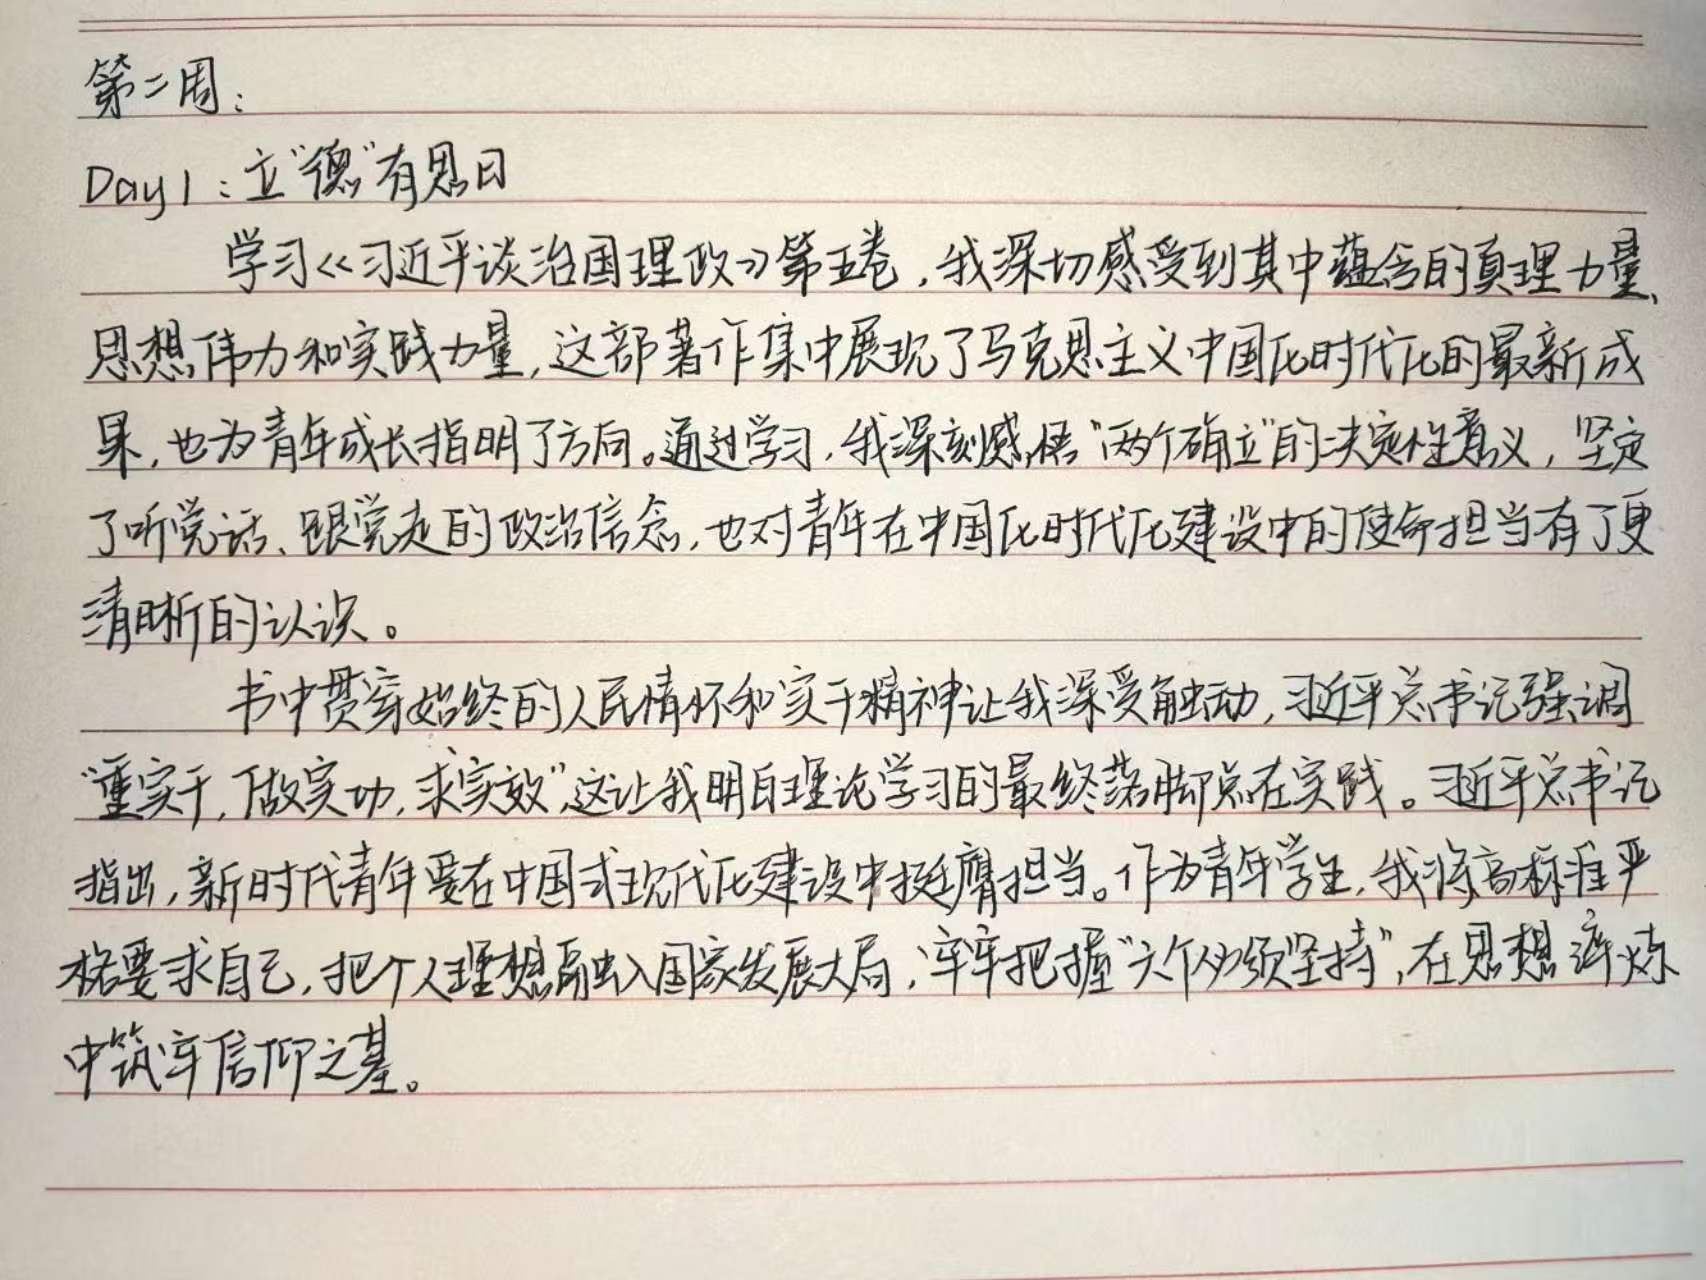 第二周：
Day1：立“德”有思日
学习《习近平谈治国理政》第五卷，我深切感受到其中蕴含的真理力量、
思想伟力和实践力量，这部著作集中展现了马克思主义中国化时代化的最新成
果，也为青年成长指明了方向。通过学习，我深刻感悟“两个确立”的决定性意义，坚定
了听党话、跟党走的政治信念，也对青年在中国化时代化建设中的使命担当有了更
清晰的认识。
书中贯穿始终的人民情怀和实干精神让我深受触动，习近平总书记强调
“重实干，做实功，求实效”，这让我明白理论学习的最终落脚点在实践。习近平总书记
指出，新时代青年要在中国式现代化建设中挺膺担当。作为青年学生，我将高标准严
格要求自己，把个人理想融入国家发展大局，牢牢把握“六个必须坚持”，在思想淬炼
中筑牢信仰之基。